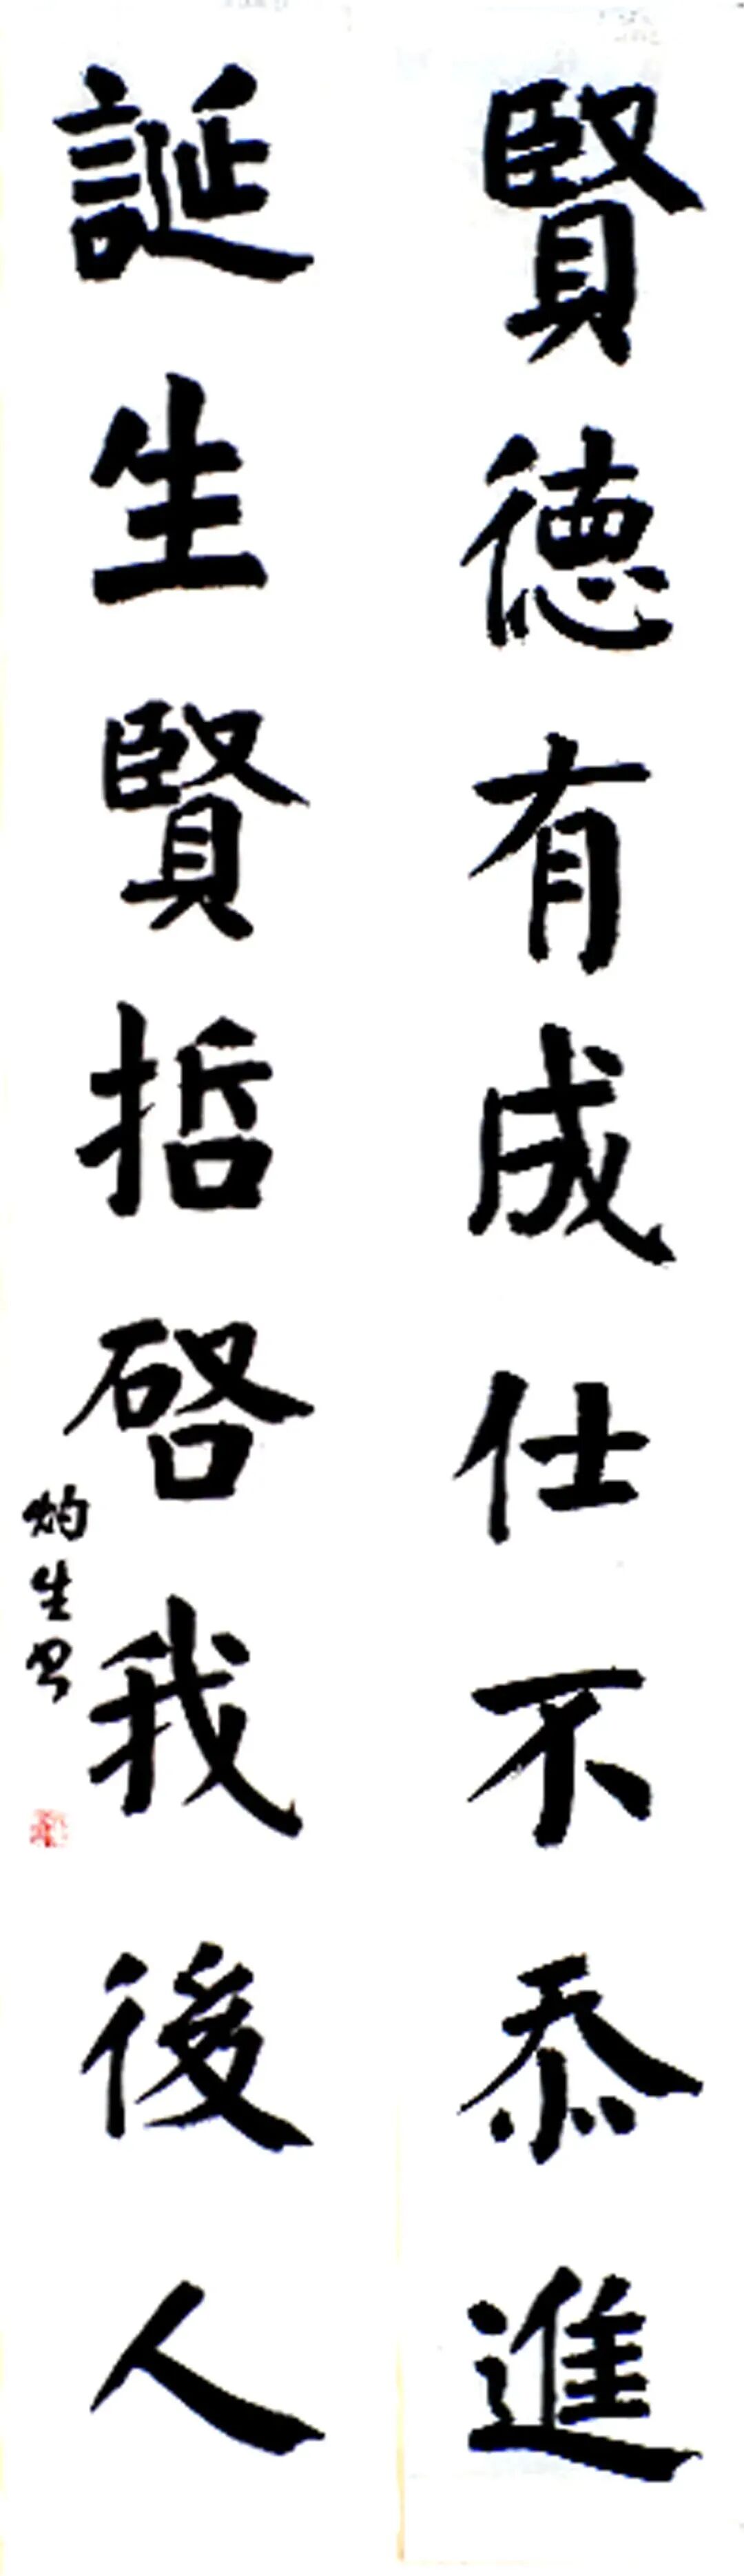 賢德有成仕不忝進
誕生賢哲啓我後人
灼生书